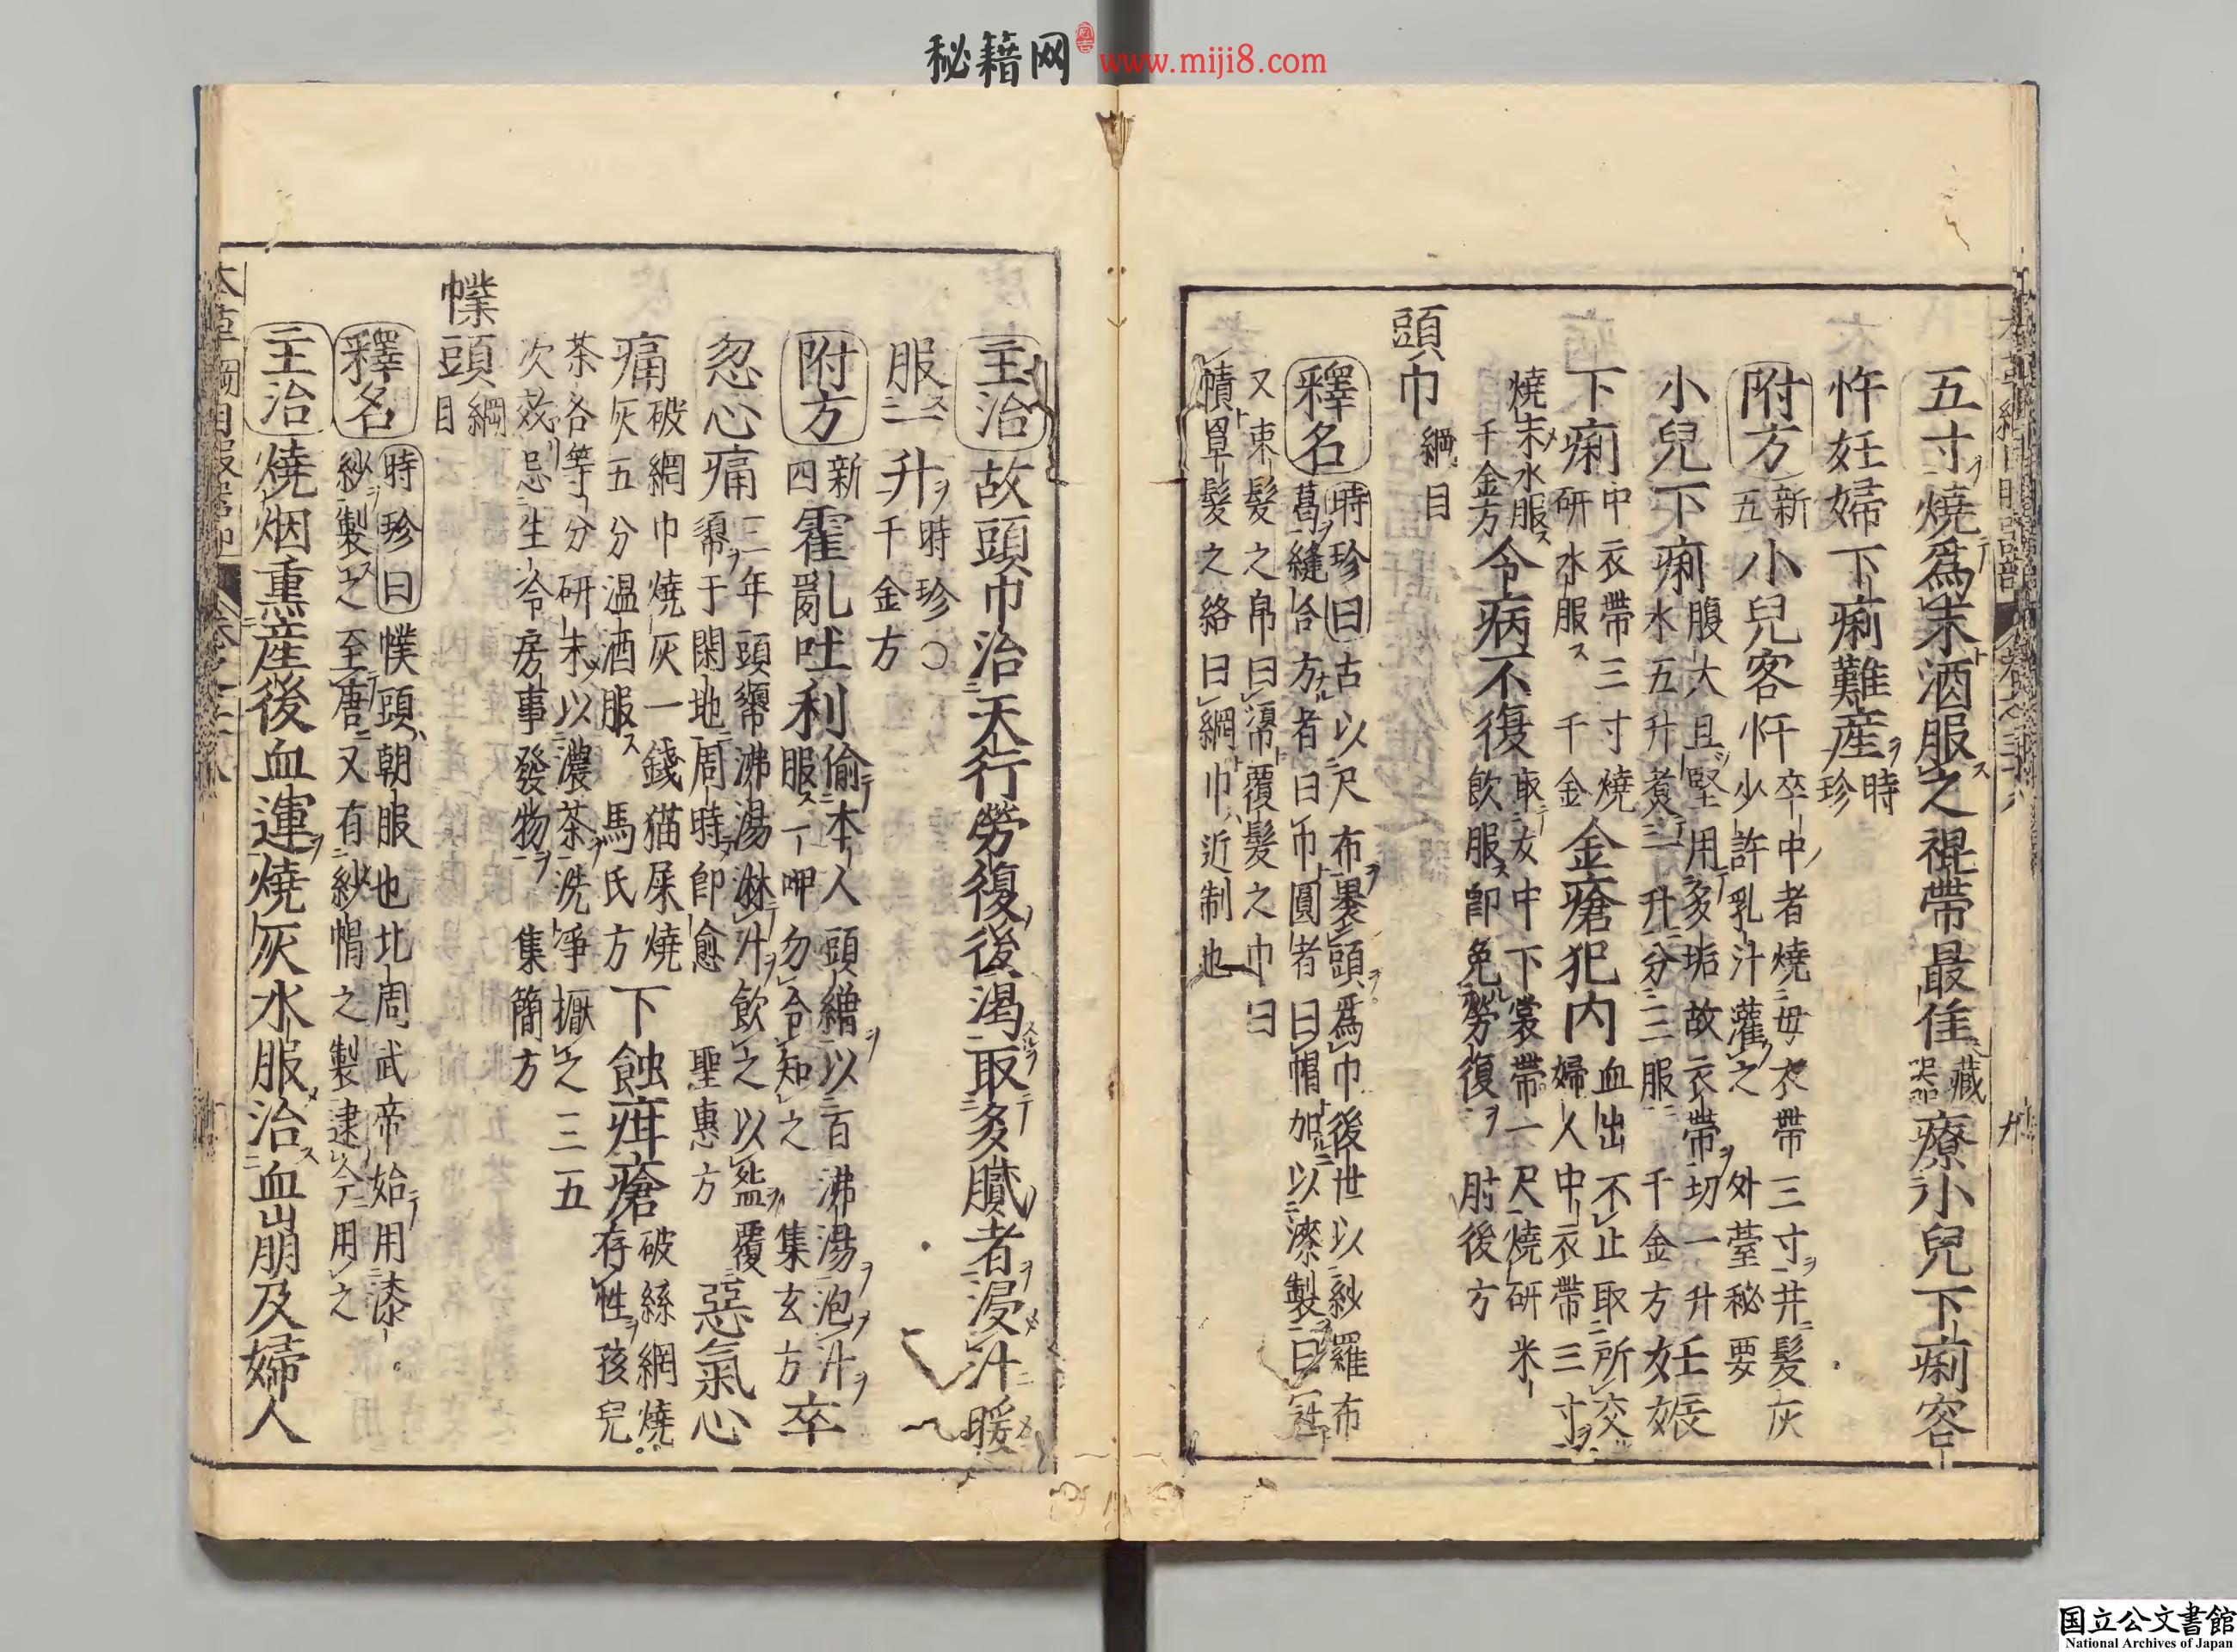 秘籍网 www.miji8.com
五寸燒爲末酒服之裩帶最佳藏器療小兒下痢客
忤妊婦下痢難産時珍
附方新五小兒客忤卒中者燒毋衣帶三寸并髮灰少許乳汁灌之外臺秘要
小兒下痢腹大且堅用多垢故衣帶切一升水五升煮三升分三服千金方妊娠
下痢中衣帶三寸燒研水服千金金瘡犯内血出不止取所交婦人中衣帶三寸
燒末水服千金方令病不復取女中下裳帶一尺燒研米飲服即免勞復肘後方
頭巾綱目
釋名時珍曰古以尺布裹頭爲巾後世以紗羅布葛縫合方者曰巾圓者曰帽加以漆製曰冠
又束髮之帛曰𢄼覆髮之巾曰幘罩髮之絡曰網巾近制也
主治故頭巾治天行勞復後渴取多膩者浸汁暖
服一升千金方時珍○
附方新四霍亂吐利偷本人頭繒以百沸湯泡汁服一呷勿令知之集玄方卒
忽心痛三年頭㡞沸湯淋汁飲之以盌覆㡞于閑地周時即愈聖惠方惡氣心
痛破網巾燒灰一錢猫屎燒灰五分温酒服馬氏方下蝕疳瘡破絲網燒存性孩兒
茶各等分研末以濃茶洗凈摋之三五次效忌生冷房事發物集簡方
幞頭綱目
釋名時珍曰幞頭朝服也北周武帝始用漆紗製之至唐又有紗帽之製逮今用之
主治燒烟熏産後血運燒灰水服治血崩及婦人
国立公文書館
National Archives of Japan